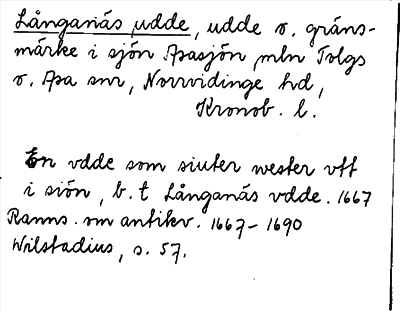 Långanäs udde, udde o. gräns-
märke i sjön Apasjön mln Tolgs
o. Apa snr, Norrvidinge hd,
Kronob. l.
En vdde som siuter wester vtt
i siön, b. t Långanäs vdde. 1667
Ranns. om antikv. 1667-1690
Wilstadius, s. 57.